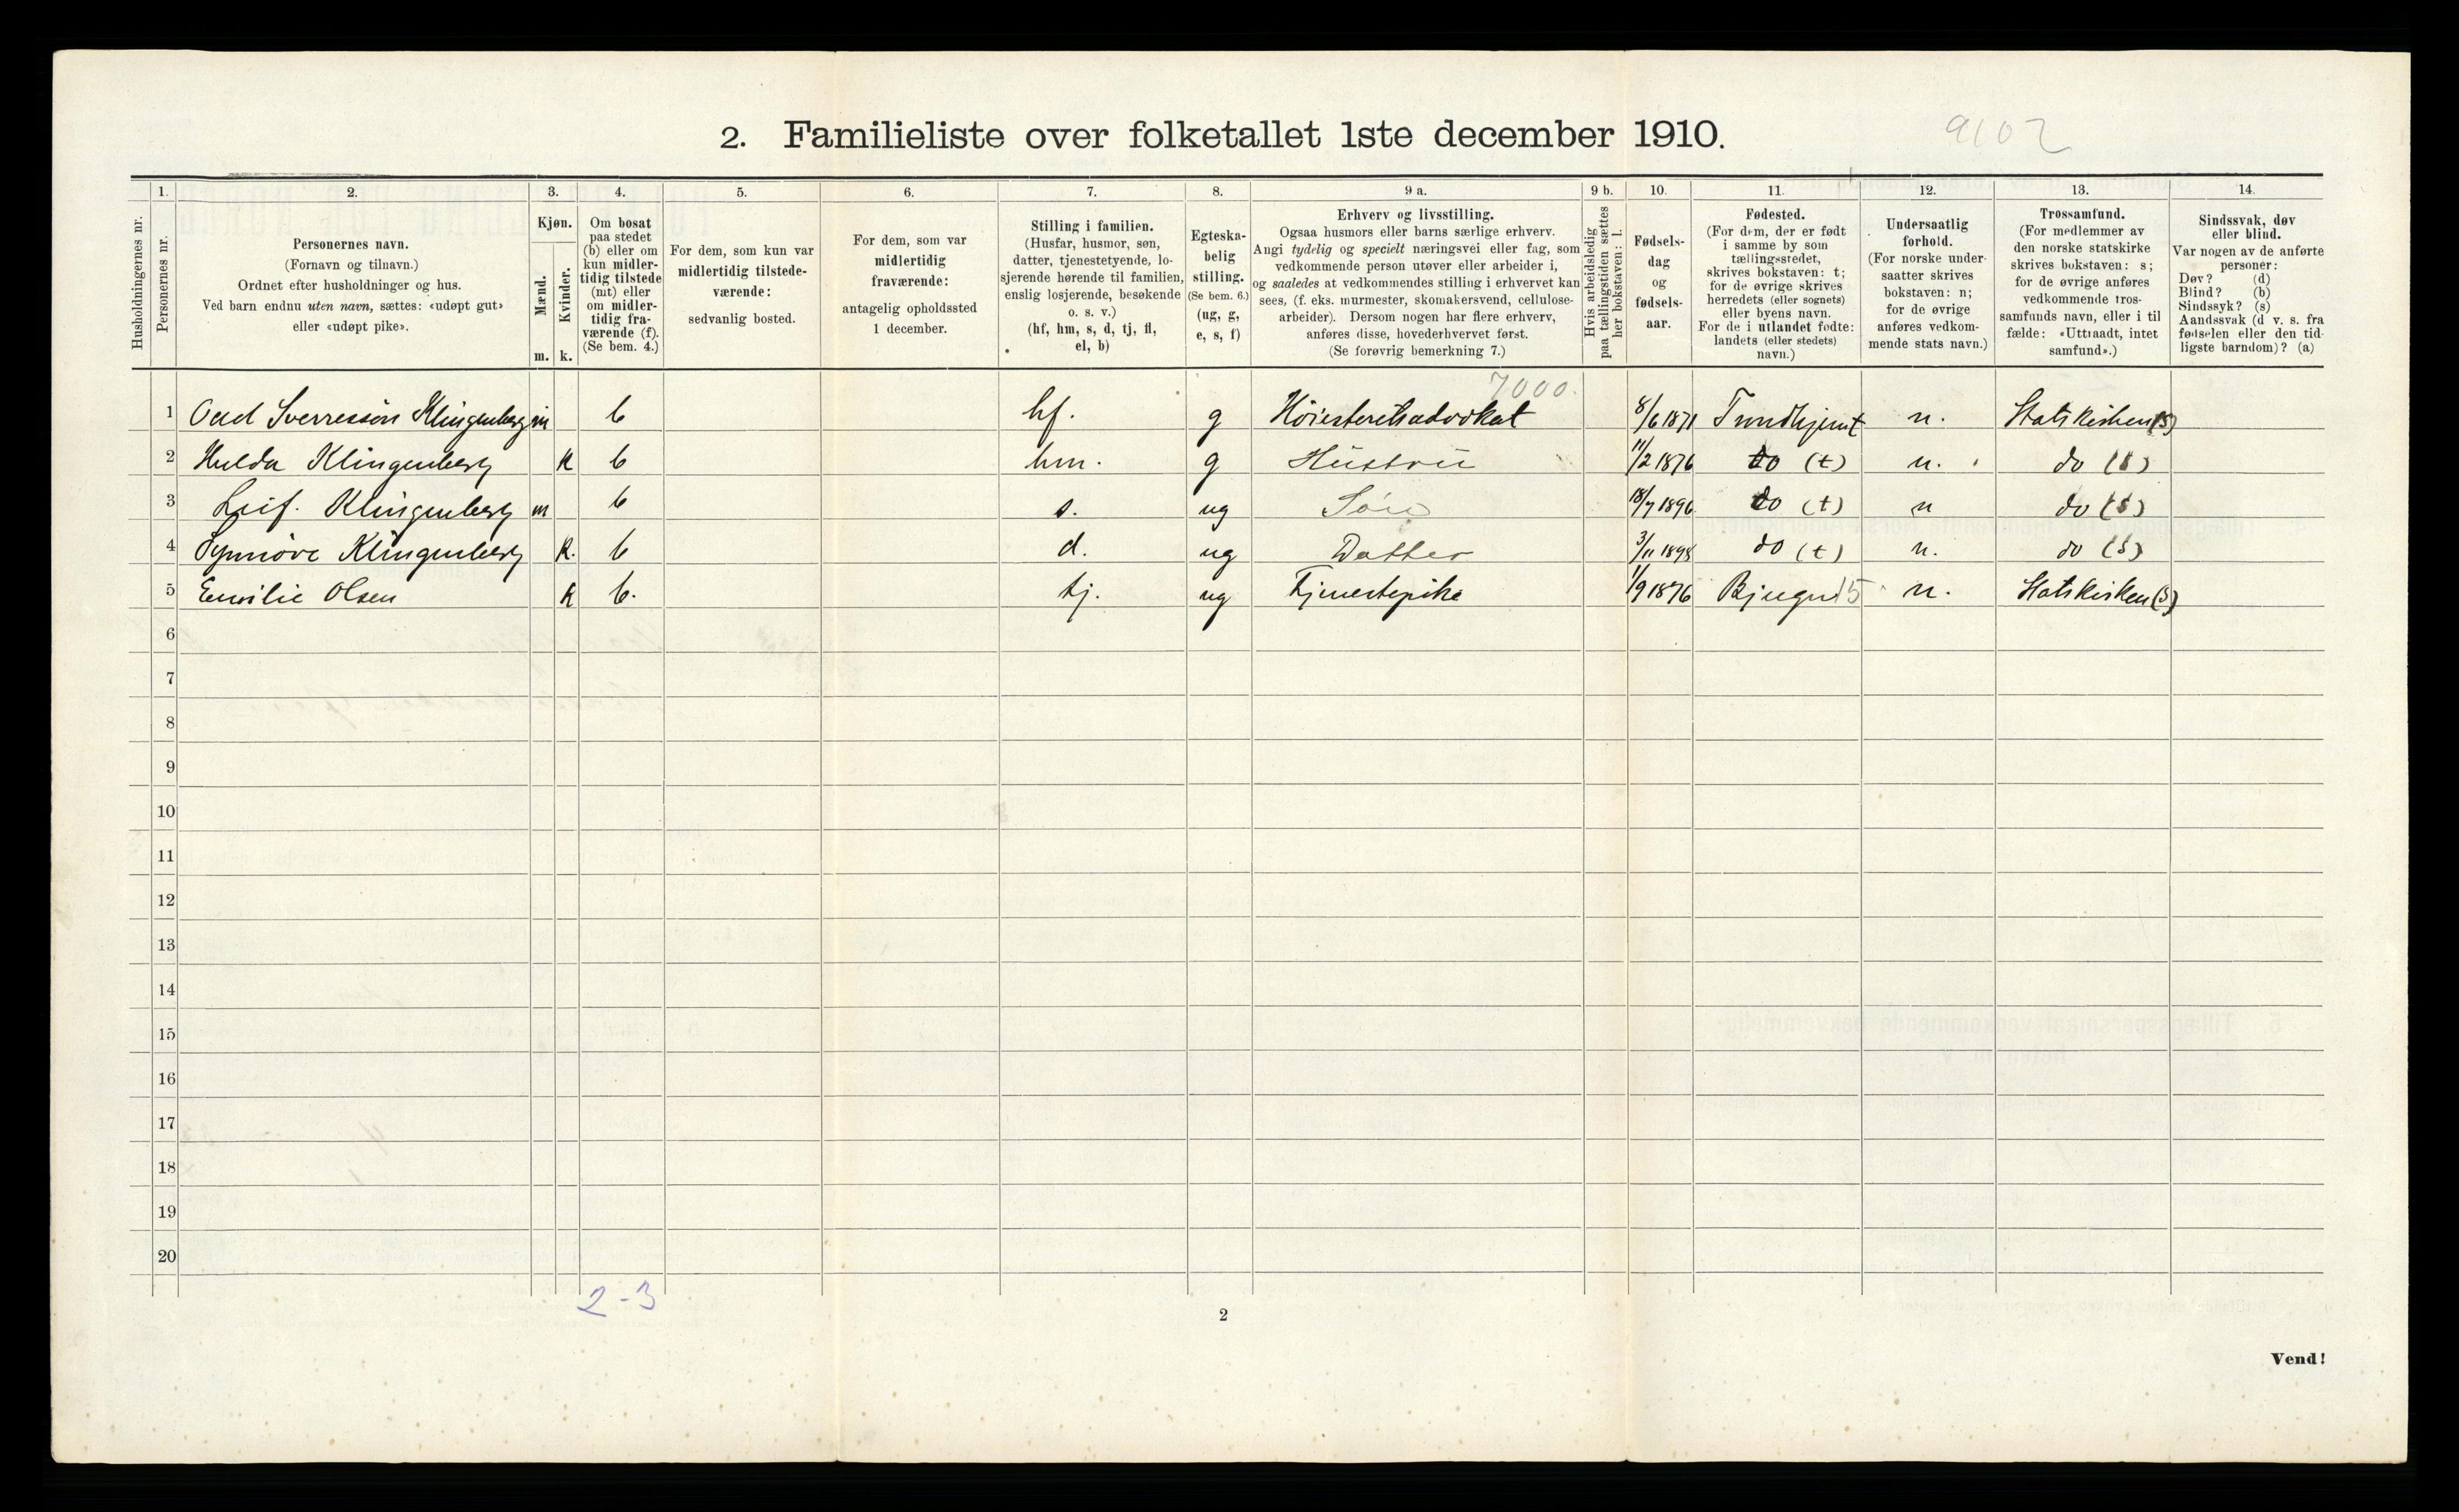 2. Familieliste over folketallet 1ste december 1910.
9102
1. 2. 3. 4. 5. 6. 7. 8. 9 a. 9 b. 10. 11. 12. 13. 14.
Husholdningernes nr.
Personernes nr.
Personernes navn.
(Fornavn og tilnavn.)
Ordnet efter husholdninger og hus.
Ved barn endnu uten navn, sættes: «udøpt gut»
eller «udøpt pike».
Kjøn.
Mænd.
Kvinder.
m. k.
Om bosat
paa stedet
(b) eller om
kun midler-
tidig tilstede
(mt) eller
om midler-
tidig fra-
værende (f).
(Se bem. 4.)
For dem, som kun var
midlertidig tilstede-
værende:
sedvanlig bosted.
For dem, som var
midlertidig
fraværende:
antagelig opholdssted
1 december.
Stilling i familien.
(Husfar, husmor, søn,
datter, tjenestetyende, lo-
sjerende hørende til familien,
enslig losjerende, besøkende
o. s. v.)
(hf, hm, s, d, tj, fl,
el, b)
Egteska-
belig
stilling.
(Se bem. 6.)
(ug, g,
e, s, f)
Erhverv og livsstilling.
Ogsaa husmors eller barns særlige erhverv.
Angi tydelig og specielt næringsvei eller fag, som
vedkommende person utøver eller arbeider i,
og saaledes at vedkommendes stilling i erhvervet kan
sees, (f. eks. murmester, skomakersvend, cellulose-
arbeider). Dersom nogen har flere erhverv,
anføres disse, hovederhvervet først.
(Se forøvrig bemerkning 7.)
Hvis arbeidsledig
paa tællingstiden sættes
her bokstaven: l.
Fødsels-
dag
og
fødsels-
aar.
Fødested.
(For dem, der er født
i samme by som
tællingsstedet,
skrives bokstaven: t;
for de øvrige skrives
herredets (eller sognets)
eller byens navn.
For de i utlandet fødte:
landets (eller stedets)
navn.)
Undersaatlig
forhold.
(For norske under-
saatter skrives
bokstaven: n;
for de øvrige
anføres vedkom-
mende stats navn.)
Trossamfund.
(For medlemmer av
den norske statskirke
skrives bokstaven: s;
for de øvrige anføres
vedkommende tros-
samfunds navn, eller i til
fælde: «Uttraadt, intet
samfund».)
Sindssvak, døv
eller blind.
Var nogen av de anførte
personer:
Døv? (d)
Blind? (b)
Sindssyk? (s)
Aandssvak (d v. s. fra
fødselen eller den tid-
ligste barndom)? (a)
7000.
1 Odd Sverressön Klingenberg m b hf. g Höiesteretsadvokat 8/6 1871 Trondhjem t n. Statskirken (s)
2 Hulda Klingenberg k b hm. g Hustru 11/2 1876 do (t) n. do (s)
3 Leif. Klingenberg m b s. ug Søn 18/7 1896 do (t) n do (s)
4 Synnöve Klingenberg k. b d. ug Datter 3/11 1898 do (t) n. do (s)
5 Emilie Olsen k b. tj. ug Tjenestepike 1/9 1876 Bjugn 15 n. Statskirken (s)
6
7
8
9
10
11
12
13
14
15
16
17
18
19
20
2-3
2
Vend!